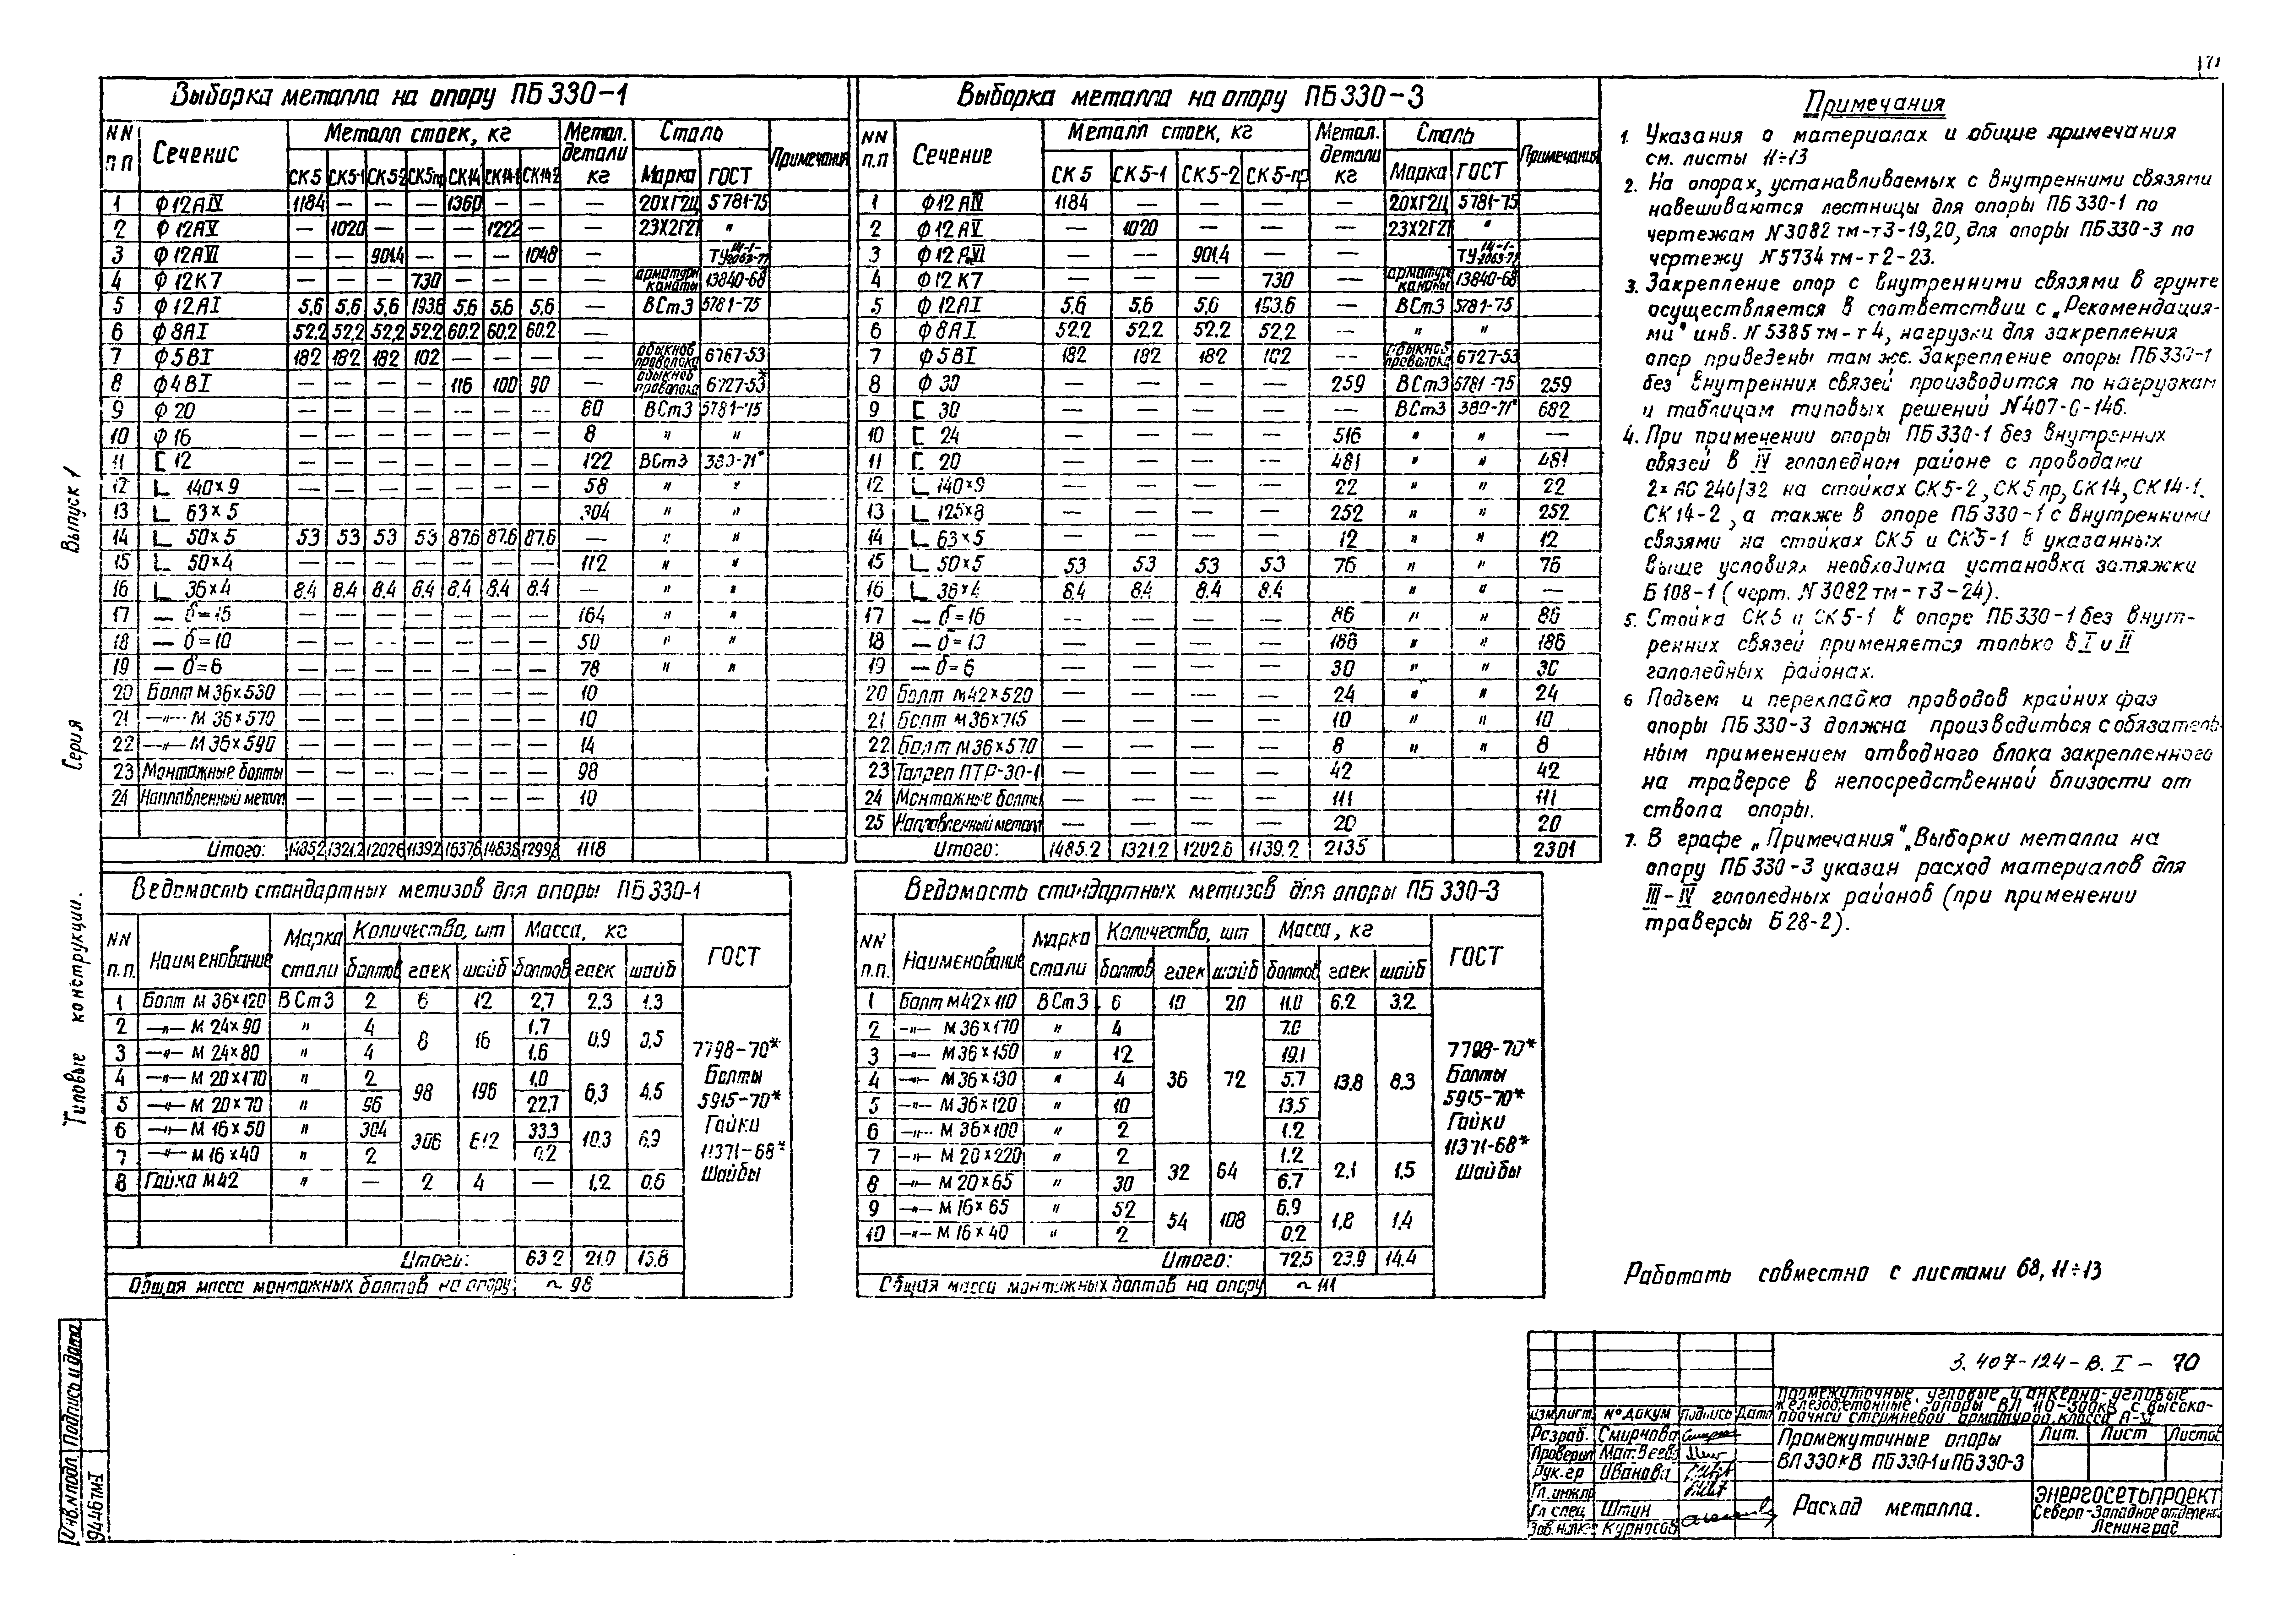 Выборка металла на опору ПБ330-1
NN п.п | Сечение | Металл стоек, кг | Метал. детали кг | Сталь | Примечания
СК5 | СК5-1 | СК5-2 | СК5пр | СК14 | СК14-1 | СК14-2 | Марка | ГОСТ
1 Ф12АIV 1184 — — — 1360 — — — 20ХГ2Ц 5781-75
2 Ф12АV — 1020 — — — 1222 — — 23Х2Г2Т "
3 Ф12АVI — — 901.4 — — — 1048 — ТУ 14-1-2063-77
4 Ф12К7 — — — 730 — — — — арматурн канаты 13840-68
5 Ф12АI 5,6 5,6 5,6 193.6 5,6 5,6 5,6 — ВСт3 5781-75
6 Ф8АI 52.2 52,2 52,2 52.2 60.2 60,2 60.2 —
7 Ф5ВI 182 182 182 102 — — — — обыкнов проволока 6767-53
8 Ф4ВI — — — — 116 100 90 — обыкнов проволока 6727-53
9 Ф20 — — — — — — — 80 ВСт3 5781-75
10 Ф16 — — — — — — — 8 " "
11 [ 12 — — — — — — — 122 ВСт3 380-71*
12 L 140×9 — — — — — — — 58 " "
13 L 63×5 304 " "
14 L 50×5 53 53 53 53 87.6 87.6 87.6 — " "
15 L 50×4 — — — — — — — 112 " "
16 L 36×4 8.4 8.4 8.4 8.4 8.4 8.4 8.4 — " "
17 — δ=16 — — — — — — — 164 " "
18 — δ=10 — — — — — — — 50 " "
19 — δ=6 — — — — — — — 78 " "
20 Болт М36×530 — — — — — — — 10
21 —"— М36×570 — — — — — — — 10
22 —"— М36×590 — — — — — — — 14
23 Монтажные болты — — — — — — — 98
24 Наплавленный метал — — — — — — — 10
Итого: 1485.2 1321.2 1202.6 1139.2 1637.8 1483.8 1299.8 1118
Выборка металла на опору ПБ330-3
NN п.п | Сечение | Металл стоек, кг | Метал. детали кг | Сталь | Примечания
СК5 | СК5-1 | СК5-2 | СК5-пр | Марка | ГОСТ
1 Ф12АIV 1184 — — — — 20ХГ2Ц 5781-75
2 Ф12АV — 1020 — — — 23Х2Г2Т "
3 Ф12АVI — — 901,4 — — ТУ 14-1-2063-77
4 Ф12К7 — — — 730 — арматурн канаты 13840-68
5 Ф12АI 5,6 5,6 5,6 193.6 — ВСт3 5781-75
6 Ф8АI 52.2 52.2 52.2 52.2 — " "
7 Ф5ВI 182 182 182 102 — обыкнов проволока 6727-53
8 Ф30 — — — — 259 ВСт3 5781-75 259
9 [ 30 — — — — — ВСт3 380-71* 682
10 [ 24 — — — — 516 " " —
11 [ 20 — — — — 481 " " 481
12 L 140×9 — — — — 22 " " 22
13 L 125×8 — — — — 252 " " 252
14 L 63×5 — — — — 12 " " 12
15 L 50×5 53 53 53 53 76 " " 76
16 L 36×4 8.4 8.4 8.4 8.4 — " " —
17 — δ=16 — — — — 86 " " 86
18 — δ=13 — — — — 186 " " 186
19 — δ=6 — — — — 30 " " 30
20 Болт М42×520 — — — — 24 " " 24
21 Болт М36×745 — — — — 10 " " 10
22 Болт М36×570 — — — — 8 " " 8
23 Талреп ПТР-30-1 — — — — 42 42
24 Монтажные болты — — — — 111 111
25 Наплавленный метал — — — — 20 20
Итого: 1485.2 1321.2 1202.6 1139.2 2135 2301
Примечания
1. Указания о материалах и общие примечания
см. листы 11÷13
2. На опорах, устанавливаемых с внутренними связями
навешиваются лестницы для опоры ПБ330-1 по
чертежам N3082тм-т3-19,20, для опоры ПБ330-3 по
чертежу N5734тм-т2-23.
3. Закрепление опор с внутренними связями в грунте
осуществляется в соответствии с „Рекомендация-
ми" инв. N5385тм-т4, нагрузки для закрепления
опор приведены там же. Закрепление опоры ПБ330-1
без внутренних связей производится по нагрузкам
и таблицам типовых решений N407-0-146.
4. При применении опоры ПБ330-1 без внутренних
связей в IV гололедном районе с проводами
2×АС240/32 на стойках СК5-2, СК5пр, СК14, СК14-1,
СК14-2, а также в опоре ПБ330-1 с внутренними
связями на стойках СК5 и СК5-1 в указанных
выше условиях необходима установка затяжки
Б108-1 (черт. N3082тм-т3-24).
5. Стойка СК5 и СК5-1 в опоре ПБ330-1 без внут-
ренних связей применяется только в I и II
гололедных районах.
6 Подъем и перекладка проводов крайних фаз
опоры ПБ330-3 должна производиться с обязатель-
ным применением отводного блока закрепленного
на траверсе в непосредственной близости от
ствола опоры.
7. В графе „Примечания" „Выборки металла на
опору ПБ330-3 указан расход материалов для
III-IV гололедных районов (при применении
траверсы Б28-2).
Ведомость стандартных метизов для опоры ПБ330-1
NN п.п. | Наименование | Марка стали | Количество, шт | Масса, кг | ГОСТ
болтов | гаек | шайб | болтов | гаек | шайб
1 Болт М36×120 ВСт3 2 6 12 2,7 2.3 1.3
2 —"— М24×90 " 4 8 16 1.7 0,9 0,5
3 —"— М24×80 " 4 1.6
4 —"— М20×170 " 2 98 196 1,0 6,3 4,5
5 —"— М20×70 " 96 22,7
6 —"— М16×50 " 304 306 612 33.3 10.3 6,9
7 —"— М16×40 " 2 0.2
8 Гайка М42 " — 2 4 — 1,2 0.6
7798-70*
Болты
5915-70*
Гайки
11371-68*
Шайбы
Итого: 63.2 21.0 13.8
Общая масса монтажных болтов на опору ~98
Ведомость стандартных метизов для опоры ПБ330-3
NN п.п. | Наименование | Марка стали | Количество, шт | Масса, кг | ГОСТ
болтов | гаек | шайб | болтов | гаек | шайб
1 Болт М42×110 ВСт3 6 10 20 11.0 6.2 3.2
2 —"— М36×170 " 4 36 72 7.0 13.8 8.3
3 —"— М36×150 " 12 19.1
4 —"— М36×130 " 4 5.7
5 —"— М36×120 " 10 13.5
6 —"— М36×100 " 2 1.2
7 —"— М20×220 " 2 32 64 1.2 2.1 1,5
8 —"— М20×65 " 30 6.7
9 —"— М16×65 " 52 54 108 6.9 1,8 1,4
10 —"— М16×40 " 2 0.2
7798-70*
Болты
5915-70*
Гайки
11371-68*
Шайбы
Итого: 72.5 23.9 14.4
Общая масса монтажных болтов на опору ~111
Работать совместно с листами 68, 11÷13
Типовые конструкции. Серия Выпуск 1
Инв.Nподл. Подпись и дата
9446тм-I
3.407-124-В.I- 70
Промежуточные, угловые и анкерно-угловые
железобетонные опоры ВЛ 110-500кВ с высоко-
прочной стержневой арматурой класса А-VI
Изм. Лист. №докум Подпись Дата
Разраб. Смирнова
Проверил Матвеева
Рук.гр Иванова
Гл.инж.пр
Гл спец Штин
Зав.НИЛКЭ Курносов
Промежуточные опоры
ВЛ330кВ ПБ330-1 и ПБ330-3
Лит. Лист Листов
Расход металла.
ЭНЕРГОСЕТЬПРОЕКТ
Северо-Западное отделен.
Ленинград